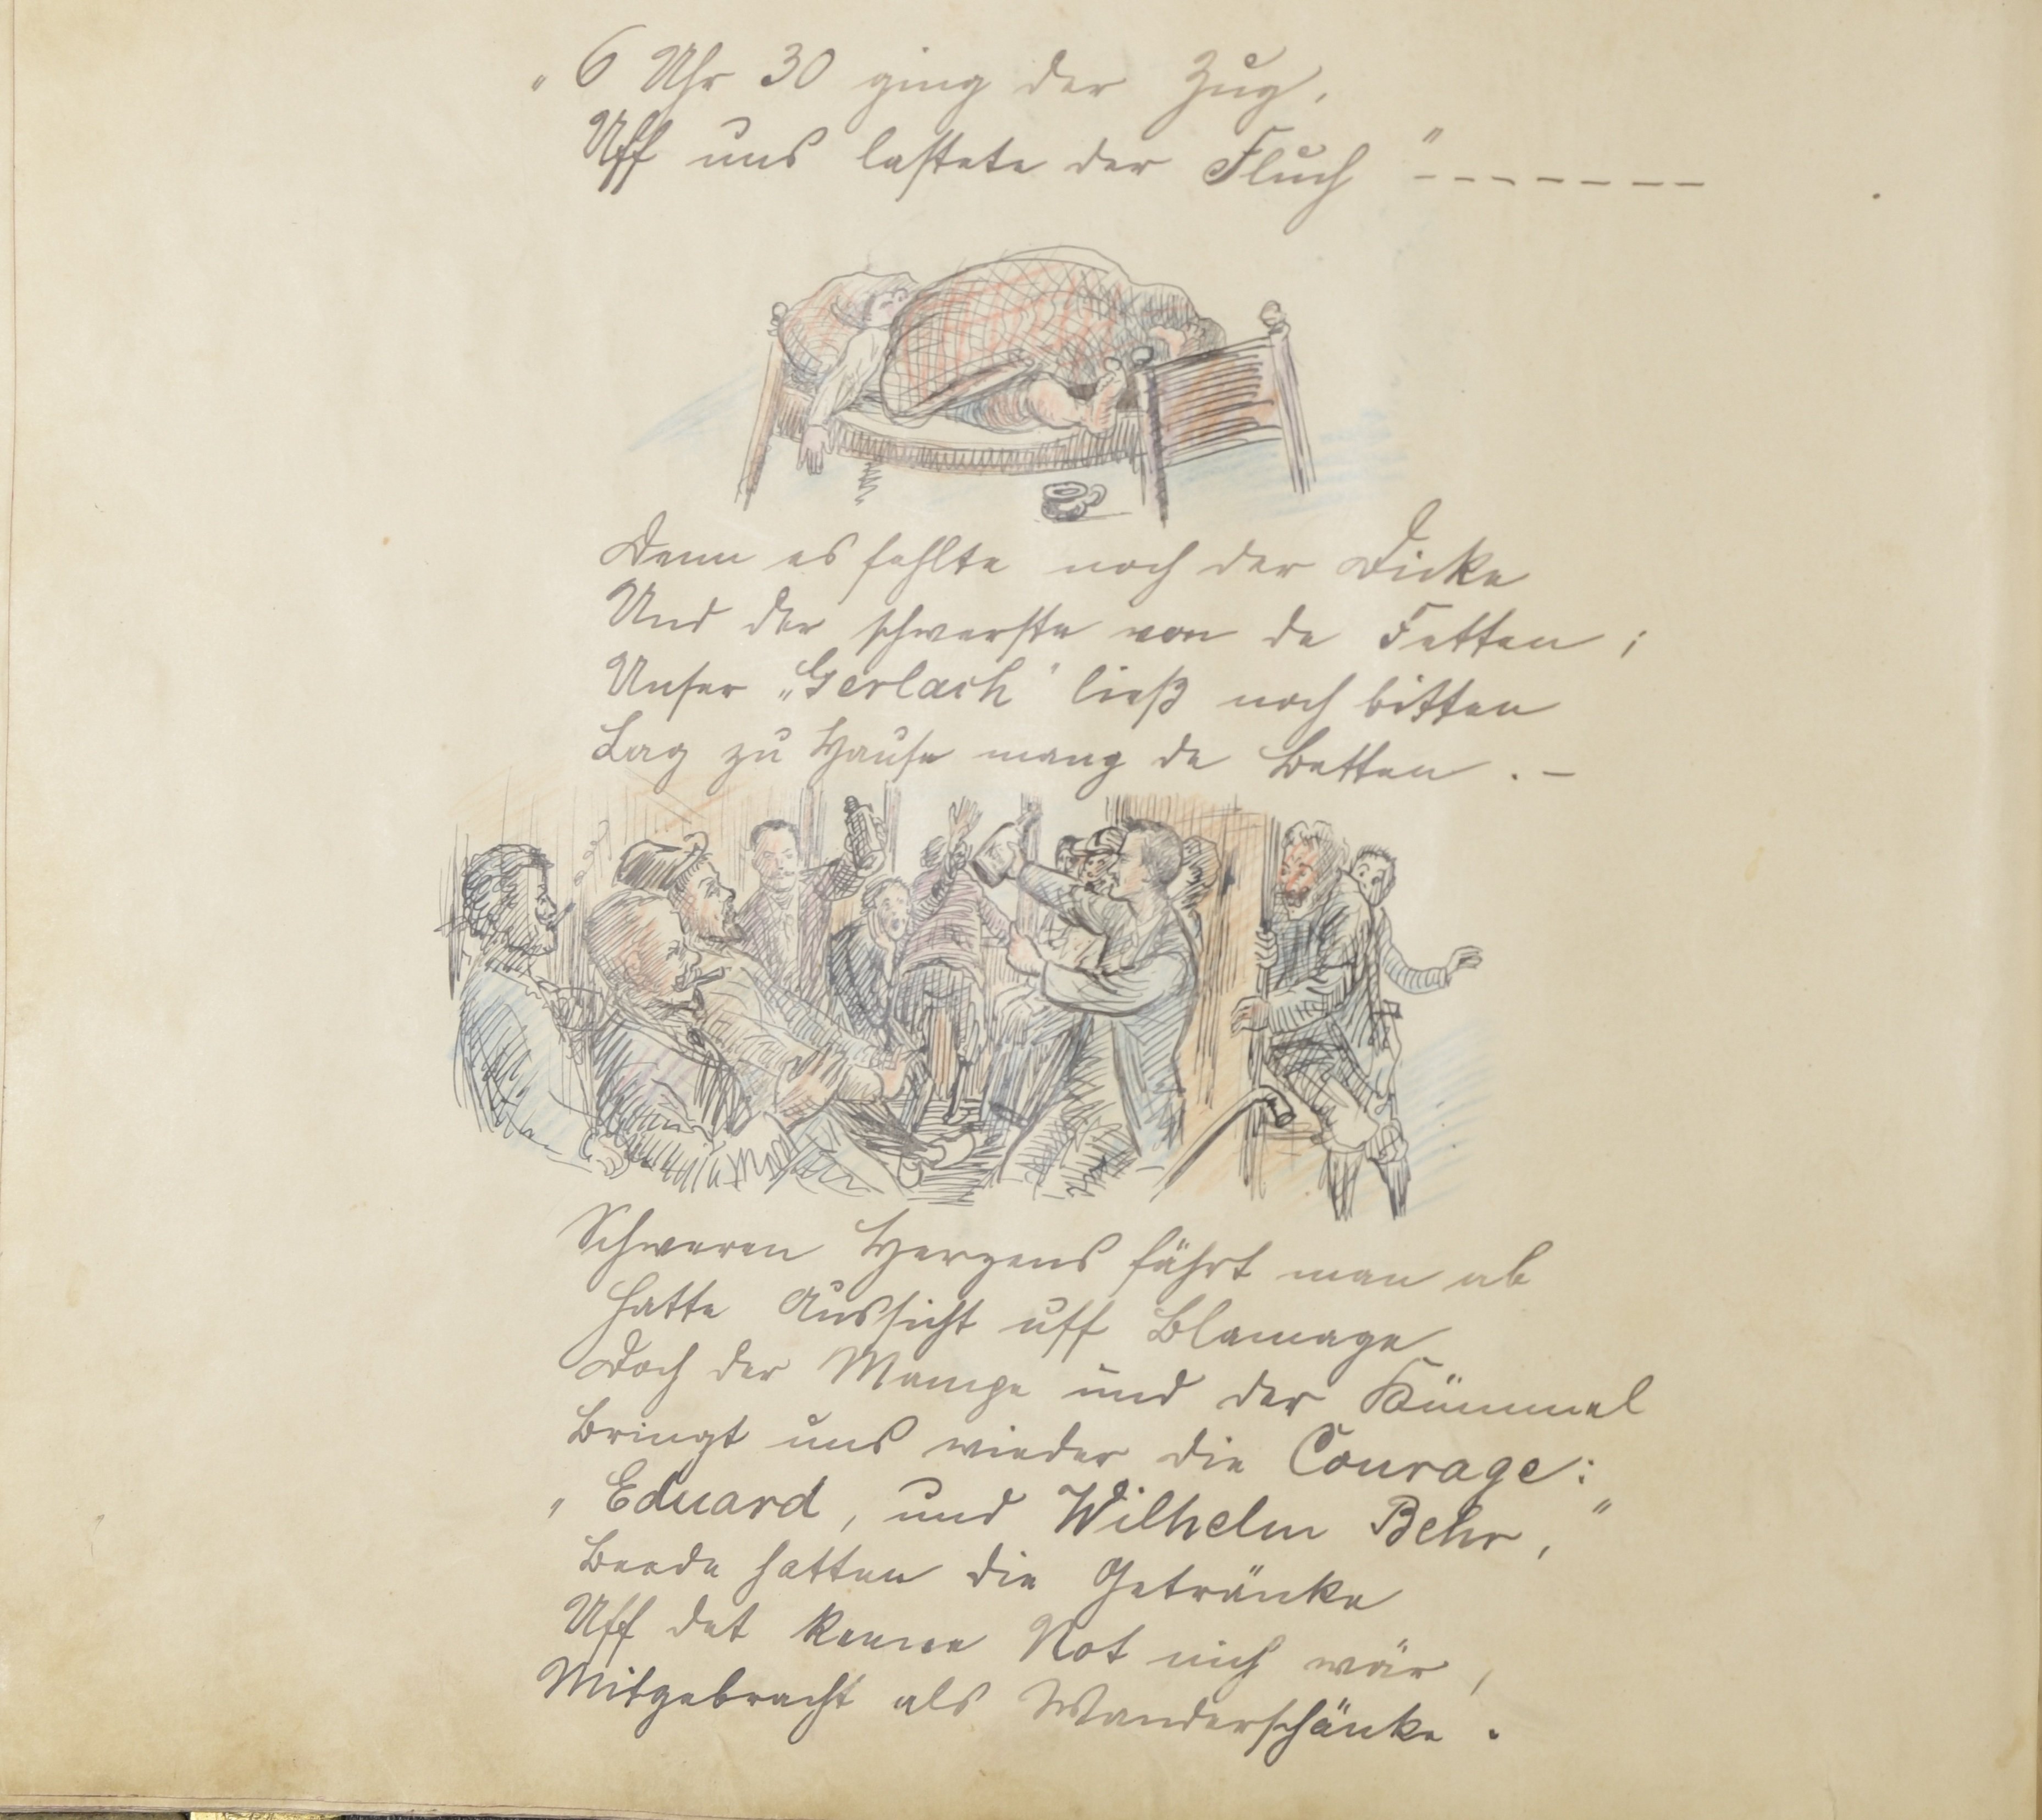 „6 Uhr 30 ging der Zug,
Uff uns lastete der Fluch" -------
Denn es fehlte noch der Dicke
Und der schwerste von de Fetten;
Unser „Gerlach" ließ noch bitten
Lag zu Hause mang de Betten. –
Schweren Herzens fährt man ab
Hatte Aussicht uff Blamage
Doch der Mampe und der Kümmel
Bringt uns wieder die Courage:
„Eduard, und Wilhelm Behr,"
Beede hatten die Getränke
Uff det keene Not nich wär,
Mitgebracht als Wanderschänke.